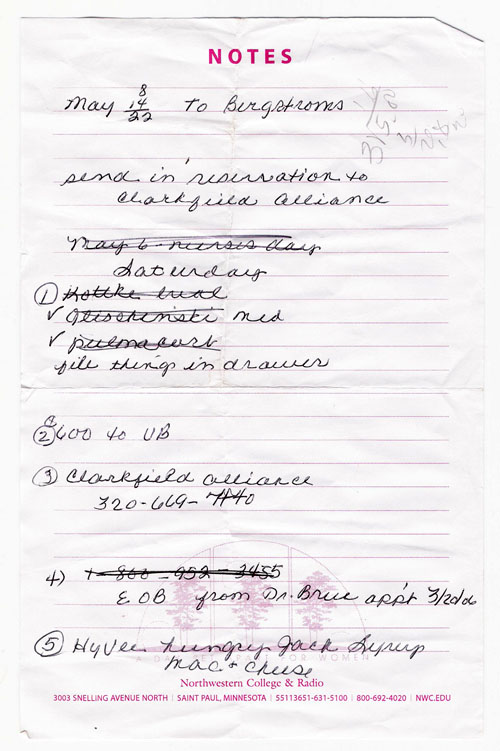 NOTES
May 8
14 to Bergstroms
22
send in reservation to
Clarkfield Alliance
May 6 - nurses day
Saturday
① Kottke
✓ med
✓ pulmacort
file things in drawer
② 600 to UB
③ Clarkfield alliance
320-669-7440
4) 1-800-952-3455
EOB from Dr. Brue app't 3/20/06
⑤ HyVee hungry Jack Syrup
mac + cheese
FOR WOMEN
Northwestern College & Radio
3003 SNELLING AVENUE NORTH | SAINT PAUL, MINNESOTA | 55113651-631-5100 | 800-692-4020 | NWC.EDU